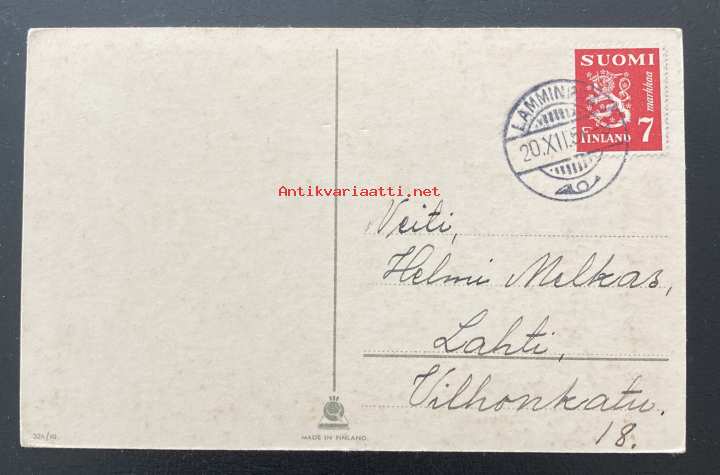 SUOMI
markkaa
FINLAND 7
20.XII.5
Antikvariaatti.net
Neiti,
Helmi Melkas,
Lahti,
Vilhonkatu.
18.
MADE IN FINLAND